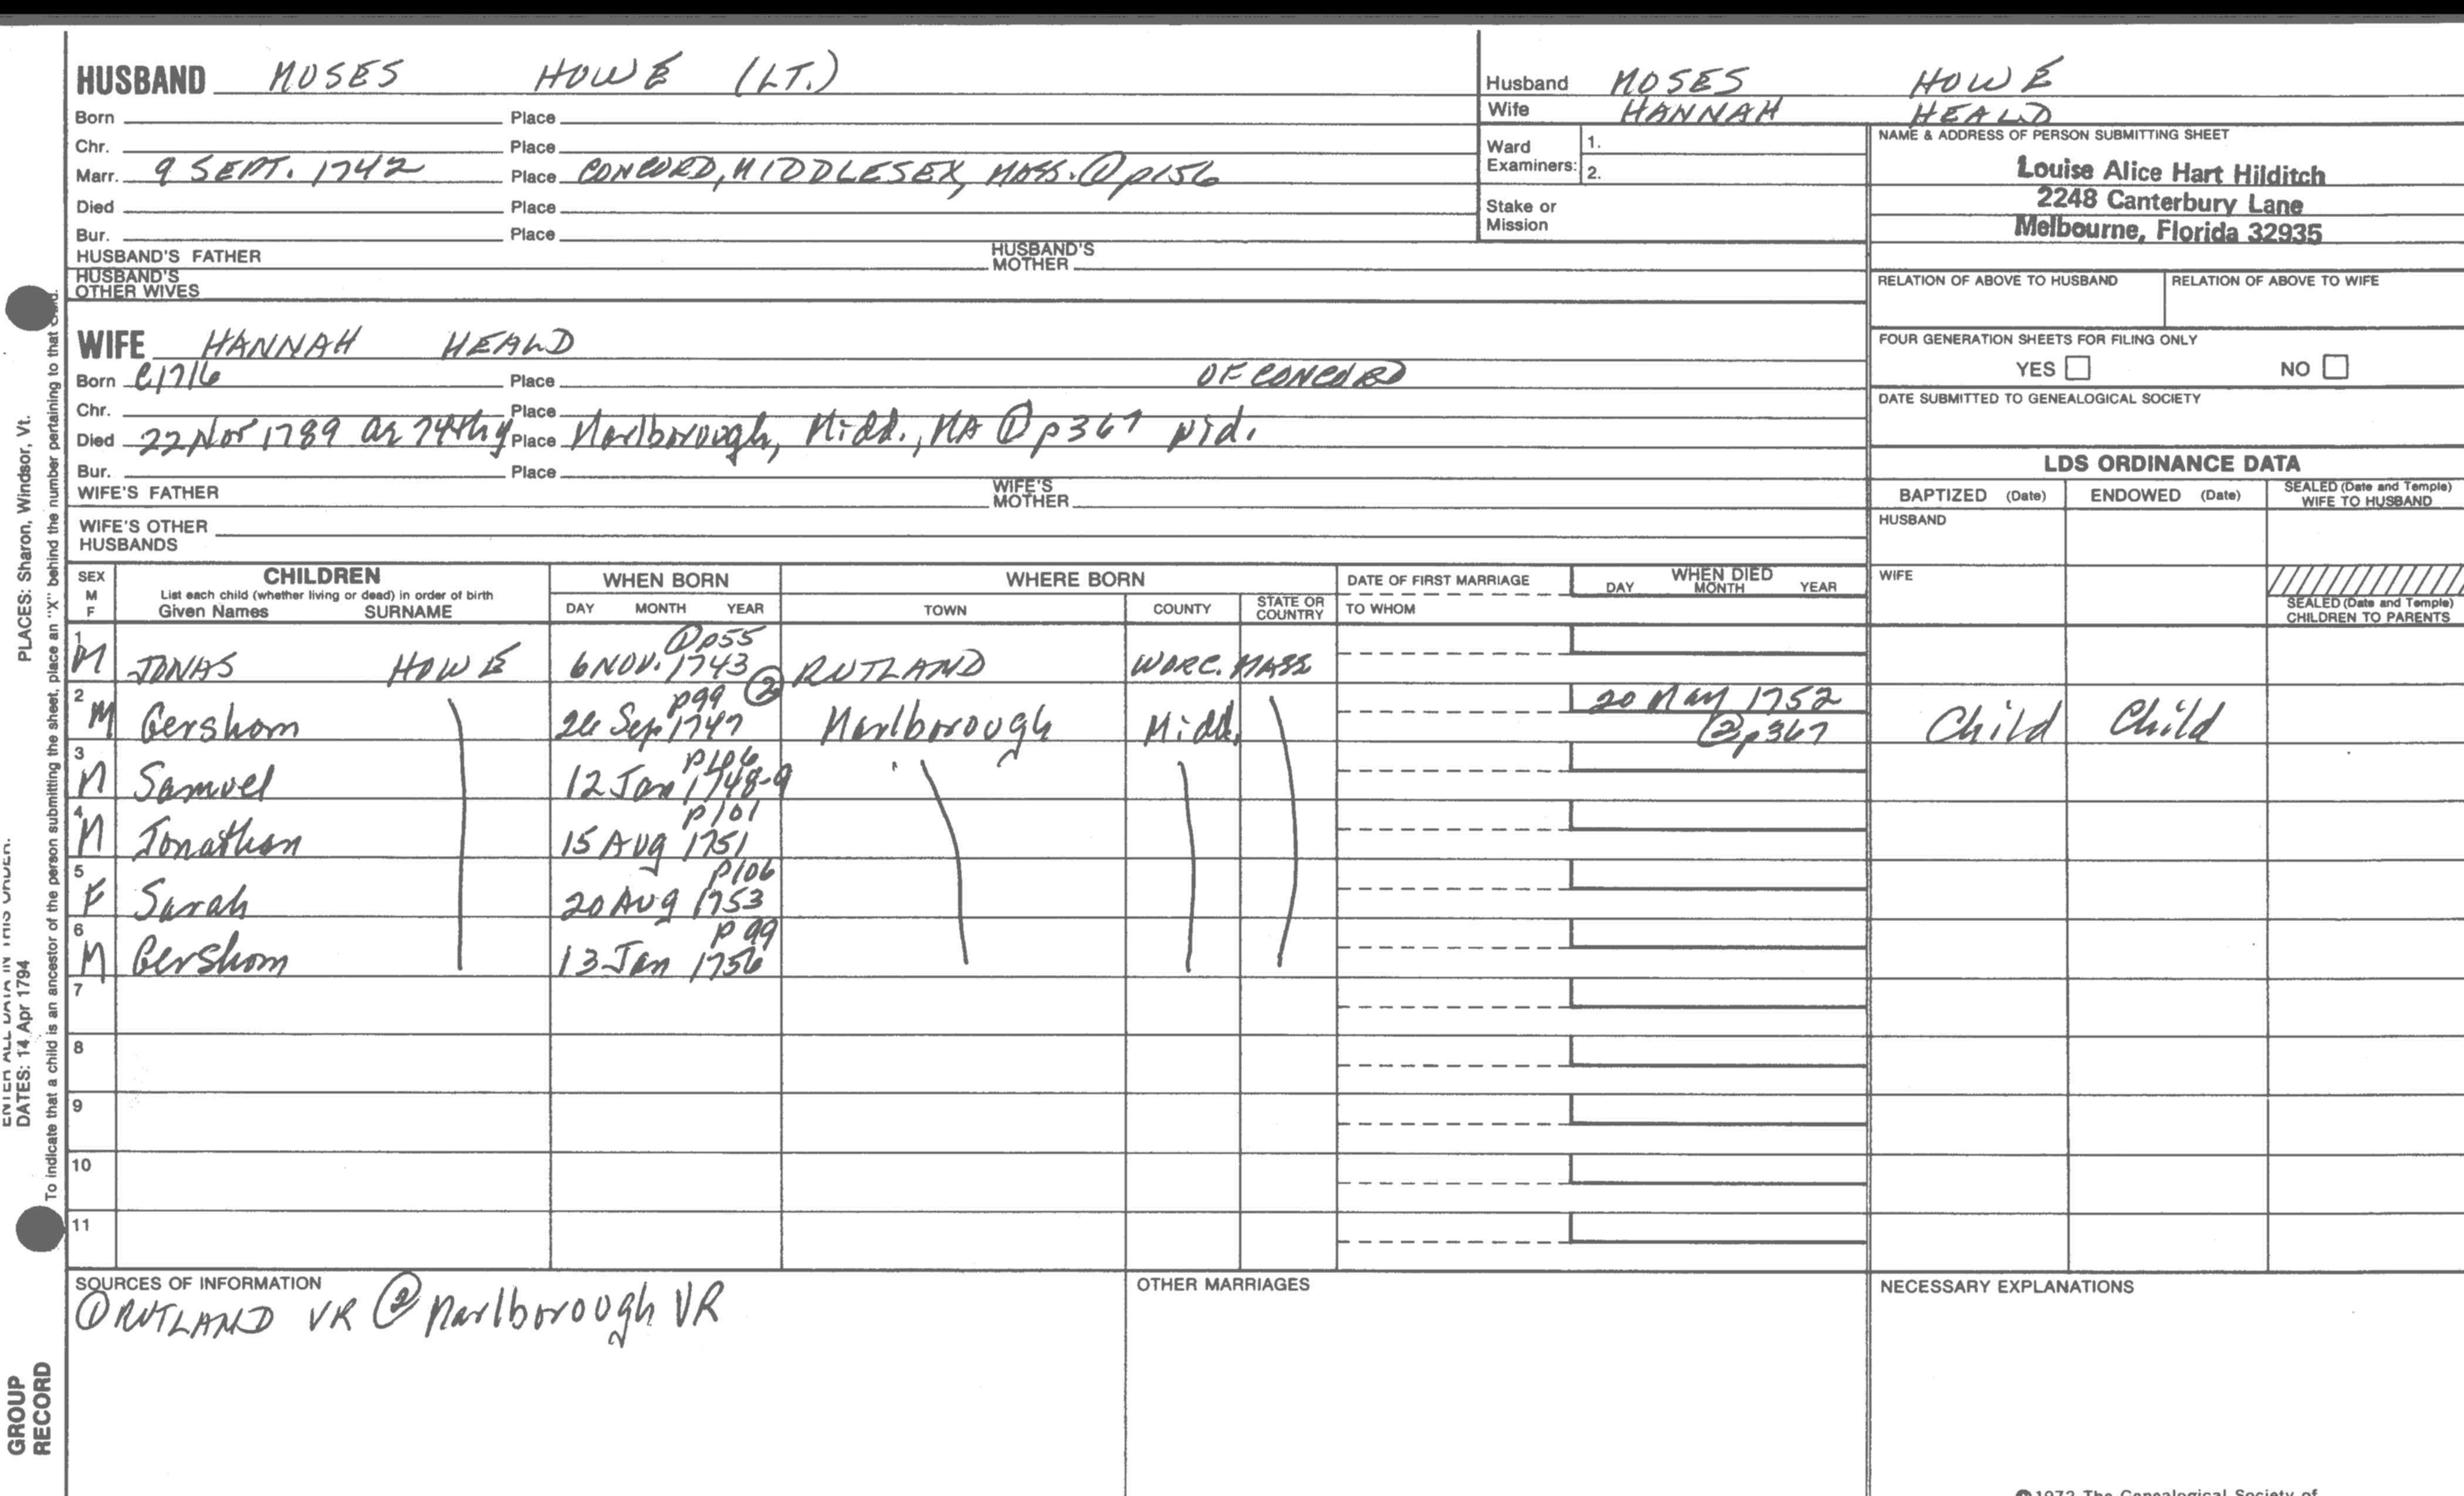 HUSBAND MOSES HOWE (LT.)
Born Place
Chr. Place
Marr. 9 SEPT. 1742 Place CONCORD, MIDDLESEX, MASS. ① p156
Died Place
Bur. Place
HUSBAND'S FATHER HUSBAND'S MOTHER
HUSBAND'S OTHER WIVES
Husband MOSES HOWE
Wife HANNAH HEALD
Ward Examiners: 1.
2.
Stake or Mission
NAME & ADDRESS OF PERSON SUBMITTING SHEET
Louise Alice Hart Hilditch
2248 Canterbury Lane
Melbourne, Florida 32935
RELATION OF ABOVE TO HUSBAND RELATION OF ABOVE TO WIFE
FOUR GENERATION SHEETS FOR FILING ONLY
YES NO
DATE SUBMITTED TO GENEALOGICAL SOCIETY
WIFE HANNAH HEALD
Born C1716 Place OF CONCORD
Chr. Place
Died 22 Nov 1789 ae 74thy Place Marlborough, Midd., MA ① p367 wid.
Bur. Place
WIFE'S FATHER WIFE'S MOTHER
WIFE'S OTHER HUSBANDS
LDS ORDINANCE DATA
BAPTIZED (Date) ENDOWED (Date) SEALED (Date and Temple) WIFE TO HUSBAND
HUSBAND
WIFE
SEALED (Date and Temple) CHILDREN TO PARENTS
SEX M F
CHILDREN
List each child (whether living or dead) in order of birth
Given Names SURNAME
WHEN BORN
DAY MONTH YEAR
WHERE BORN
TOWN COUNTY STATE OR COUNTRY
DATE OF FIRST MARRIAGE
TO WHOM
WHEN DIED
DAY MONTH YEAR
① p55
1 M JONAS HOWE 6 NOV. 1743 RUTLAND WORC. MASS
p99 ②
2 M Gershom 26 Sep 1747 Marlborough Midd. 20 May 1752 ② p367 Child Child
p106
3 M Samuel 12 Jan 1748-9
p101
4 M Jonathan 15 Aug 1751
p106
5 F Sarah 20 Aug 1753
p 99
6 M Gershom 13 Jan 1756
7
8
9
10
11
SOURCES OF INFORMATION
① RUTLAND VR ② Marlborough VR
OTHER MARRIAGES
NECESSARY EXPLANATIONS
1972 The Genealogical Society of
PLACES: Sharon, Windsor, Vt.
ENTER ALL DATA IN THIS ORDER:
DATES: 14 Apr 1794
To indicate that a child is an ancestor of the person submitting the sheet, place an "X" behind the number pertaining to that
GROUP
RECORD